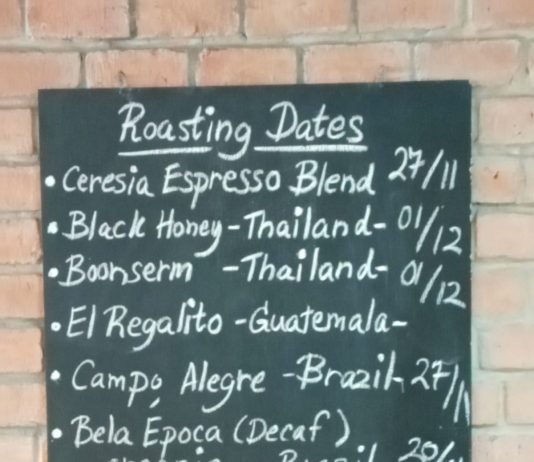 Roasting Dates
• Ceresia Espresso Blend 27/11
• Black Honey - Thailand - 01/12
• Boonserm - Thailand - 01/12
• El Regalito - Guatemala -
• Campo Alegre - Brazil - 27/11
• Bela Época (Decaf)
Brazil 20/